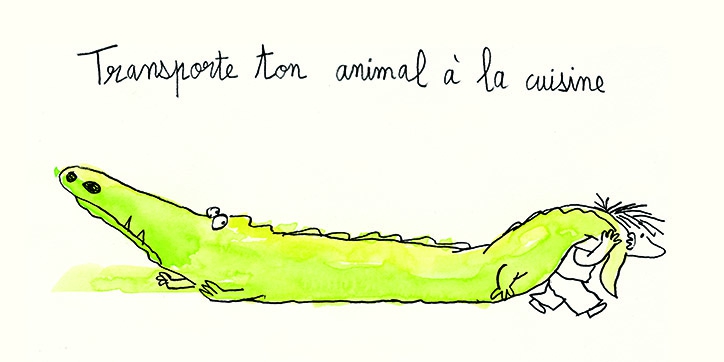 Transporte ton animal à la cuisine